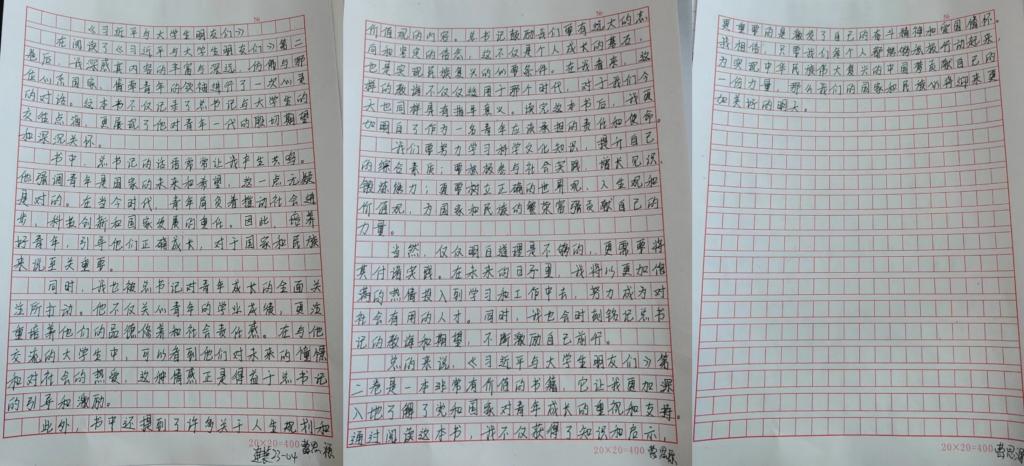 《习近平与大学生朋友们》
在阅读了《习近平与大学生朋友们》第二
卷后，我深感其内容的丰富与深远，仿佛与那
位心系国家、情牵青年的领袖进行了一次心灵
的对话。这本书不仅记录了总书记与大学生的
交往点滴，更展现了他对青年一代的殷切期望
和深沉关怀。
书中，总书记的话语常常让我产生共鸣。
他强调青年是国家的未来和希望，这一点无疑
是对的。在当今时代，青年肩负着推动社会进
步、科技创新和国家发展的重任。因此，培养
好青年，引导他们正确成长，对于国家和民族
来说至关重要。
同时，我也被总书记对青年成长的全面关
注所打动。他不仅关心青年的学业成绩，更注
重培养他们的品德修养和社会责任感。在与他
交流的大学生中，可以看到他们对未来的憧憬
和对社会的热爱，这种情感正是得益于总书记
的引导和激励。
此外，书中还提到了许多关于人生规划和
20×20=400
23-04
价值观的内容。总书记鼓励我们要有远大的志
向和坚定的信念，这不仅是个人成长的基石，
也是实现民族复兴的必要条件。在我看来，这
样的教诲不仅仅适用于那个时代，对于我们今
天也同样具有指导意义。读完这本书后，我更
加明白了作为一名青年应该承担的责任和使命。
我们要努力学习科学文化知识，提升自己
的综合素质；要积极参与社会实践，增长见识、
锻炼能力；更要树立正确的世界观、人生观和
价值观，为国家和民族的繁荣富强贡献自己的
力量。
当然，仅仅明白道理是不够的，更需要将
其付诸实践。在未来的日子里，我将以更加饱
满的热情投入到学习和工作中去，努力成为对
社会有用的人才。同时，我也会时刻铭记总书
记的教诲和期望，不断激励自己前行。
总的来说，《习近平与大学生朋友们》第
二卷是一本非常有价值的书籍，它让我更加深
入地了解了党和国家对青年成长的重视和支持。
通过阅读这本书，我不仅获得了知识和启示，
20×20=400
更重要的是激发了自己的奋斗精神和爱国情怀。
我相信，只要我们每个人都能够积极行动起来，
为实现中华民族伟大复兴的中国梦贡献自己的
一份力量，那么我们的国家和民族必将迎来更
加美好的明天。
20×20=400